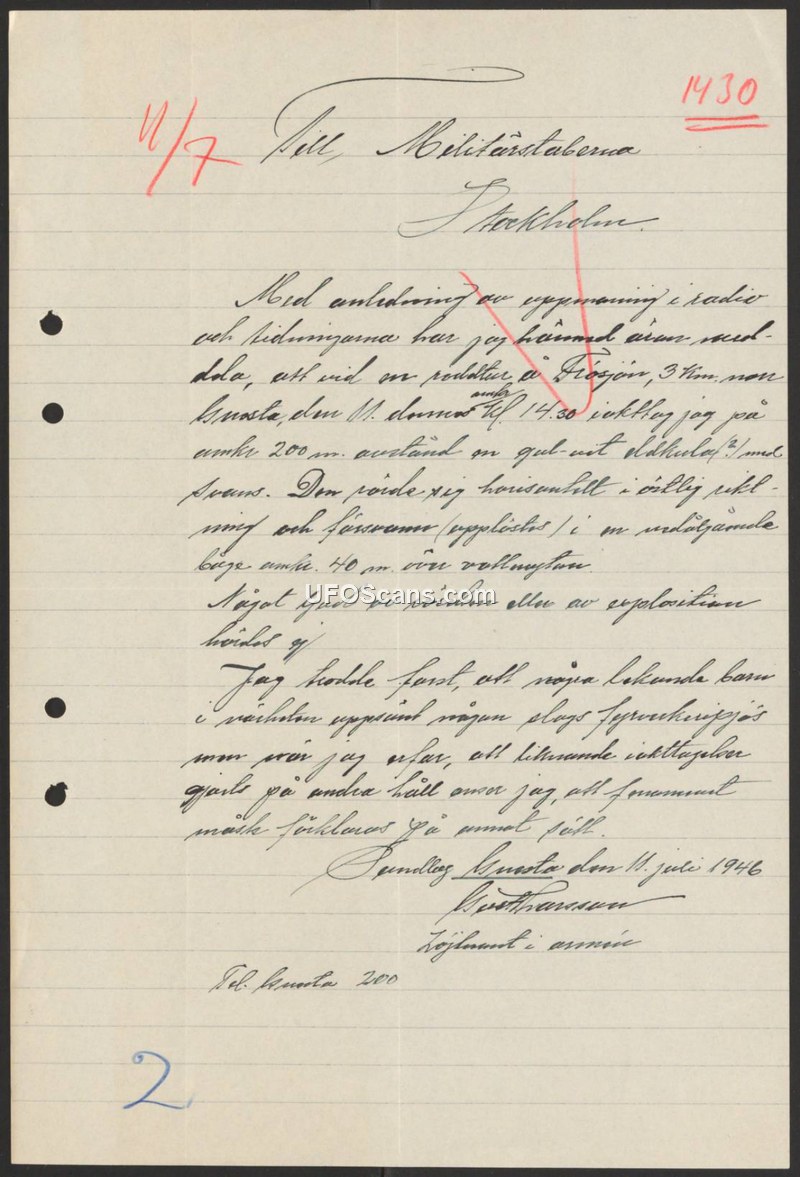 11/7
1430
Till, Militärstaberna
Stockholm.
Med anledning av uppmaning i radio
och tidningarna har jag härmed äran med-
dela, att vid en roddtur å Frösjön, 3 km. norr
Gnesta, den 11. dennes amkr kl. 14.30 iakttog jag på
amkr 200 m. avstånd en gul-vit eldkula (?) med
svans. Den rörde sig horisontellt i östlig rikt-
ning och försvann (upplöstes) i en nedåtgående
båge amkr. 40 m. över vattenytan.
Något ljud av eller av explosition
hördes ej
Jag trodde först, att några lekande barn
i närheten uppsänt någon slags fyrverkeripjäs
men när jag erfar, att liknande iakttagelser
gjorts på andra håll anser jag, att fenomenet
måste förklaras på annat sätt.
Gnesta den 11. juli 1946
Löjtnant i armén
Tel. Gnesta 200
2
UFOScans.com